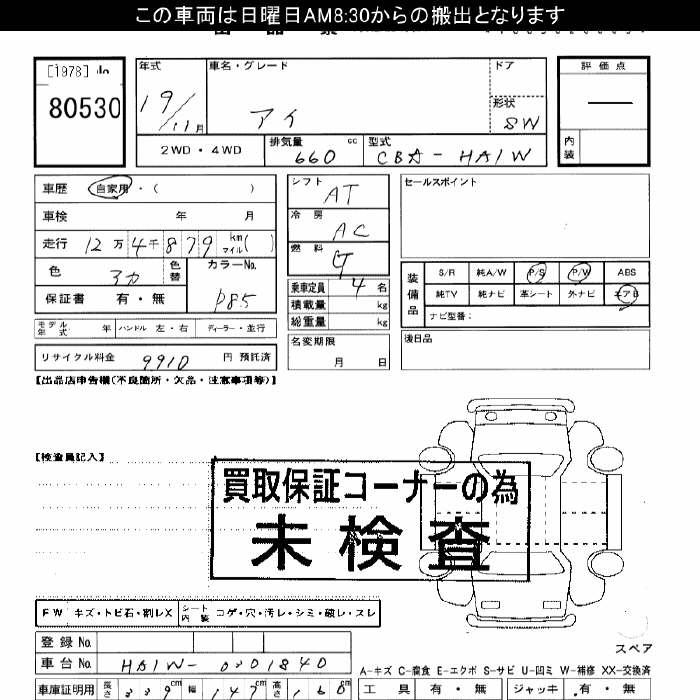 この車両は日曜日AM8:30からの搬出となります
[1978]
80530
年式
車名・グレード
ドア
評価点
19/11月
アイ
形状
SW
2WD・4WD
排気量
660
cc
型式
CBA-HA1W
内装
車歴
自家用・( )
シフト
AT
セールスポイント
車検 年 月
冷房
AC
走行 12万4千879 km マイル( )
燃料
G
色
アカ
色替
カラーNo.
P85
乗車定員 4名
保証書 有・無
積載量 kg
総重量 kg
装備品
S/R 純A/W P/S P/W ABS
純TV 純ナビ 革シート 外ナビ エアB
ナビ型番:
モデル年式 年 ハンドル 左・右 ディーラー・並行
名変期限
月 日
後日品
リサイクル料金 9910 円 預託済
【出品店申告欄(不良箇所・欠品・注意事項等)】
【検査員記入】
買取保証コーナーの為
未検査
FW キズ・トビ石・割レX シート内装 コゲ・穴・汚レ・シミ・破レ・スレ
登録No.
車台No. HA1W-0301840
スペア
A-キズ C-腐食 E-エクボ S-サビ U-凹ミ W-補修 XX-交換済
車庫証明用 長さ 339cm 幅 147cm 高さ 160cm
工具 有・無 ジャッキ 有・無